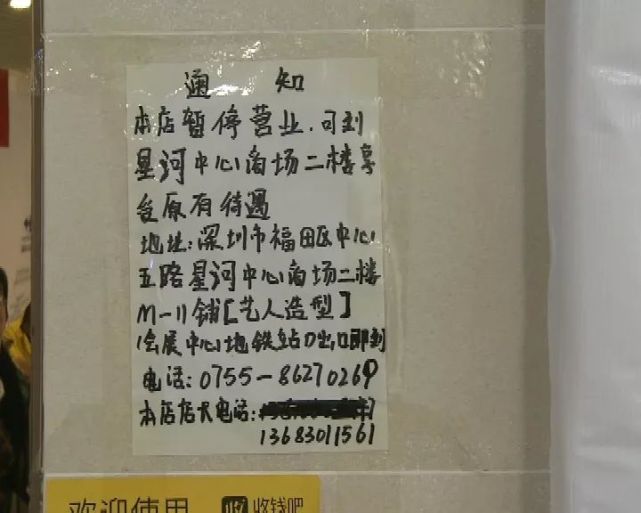 通 知
本店暂停营业.可到
星河中心商场二楼享
受原有待遇
地址:深圳市福田区中心
五路星河中心商场二楼
M-11铺[艺人造型]
(会展中心地铁站D出口即到
电话:0755-86270269
本店店长电话:
13683011561
欢迎使用 收钱吧